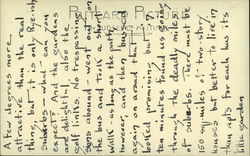 A few degrees more
attractive than the real
thing, but, it is only Rye
suburbs carry any
And the gardens
are delightful, also the
golf links. No trespassing
signs abound - went on
walk along the
however, and then bussed
again on around that
looked promising, but
ten minutes found us going
through the deadly miles
of suburbs. There must be
150 sq. miles of two-story
houses but better to live in
than apts for each has its
little garden.